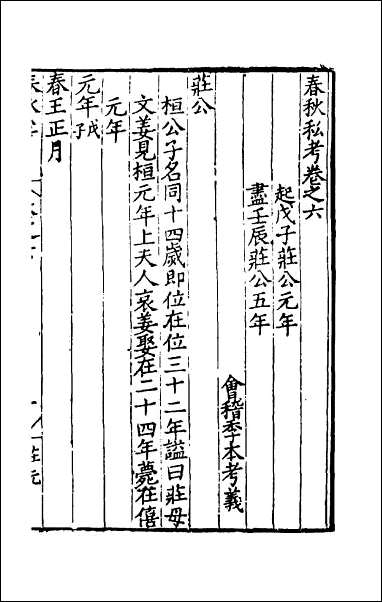 春秋私考卷之六
起戊子莊公元年
盡壬辰莊公五年
會稽季本考義
莊公
桓公子名同十四歲即位在位三十二年謚曰莊母
文姜見桓元年上夫人哀姜娶在二十四年薨在僖
元年
元年戊子
春王正月